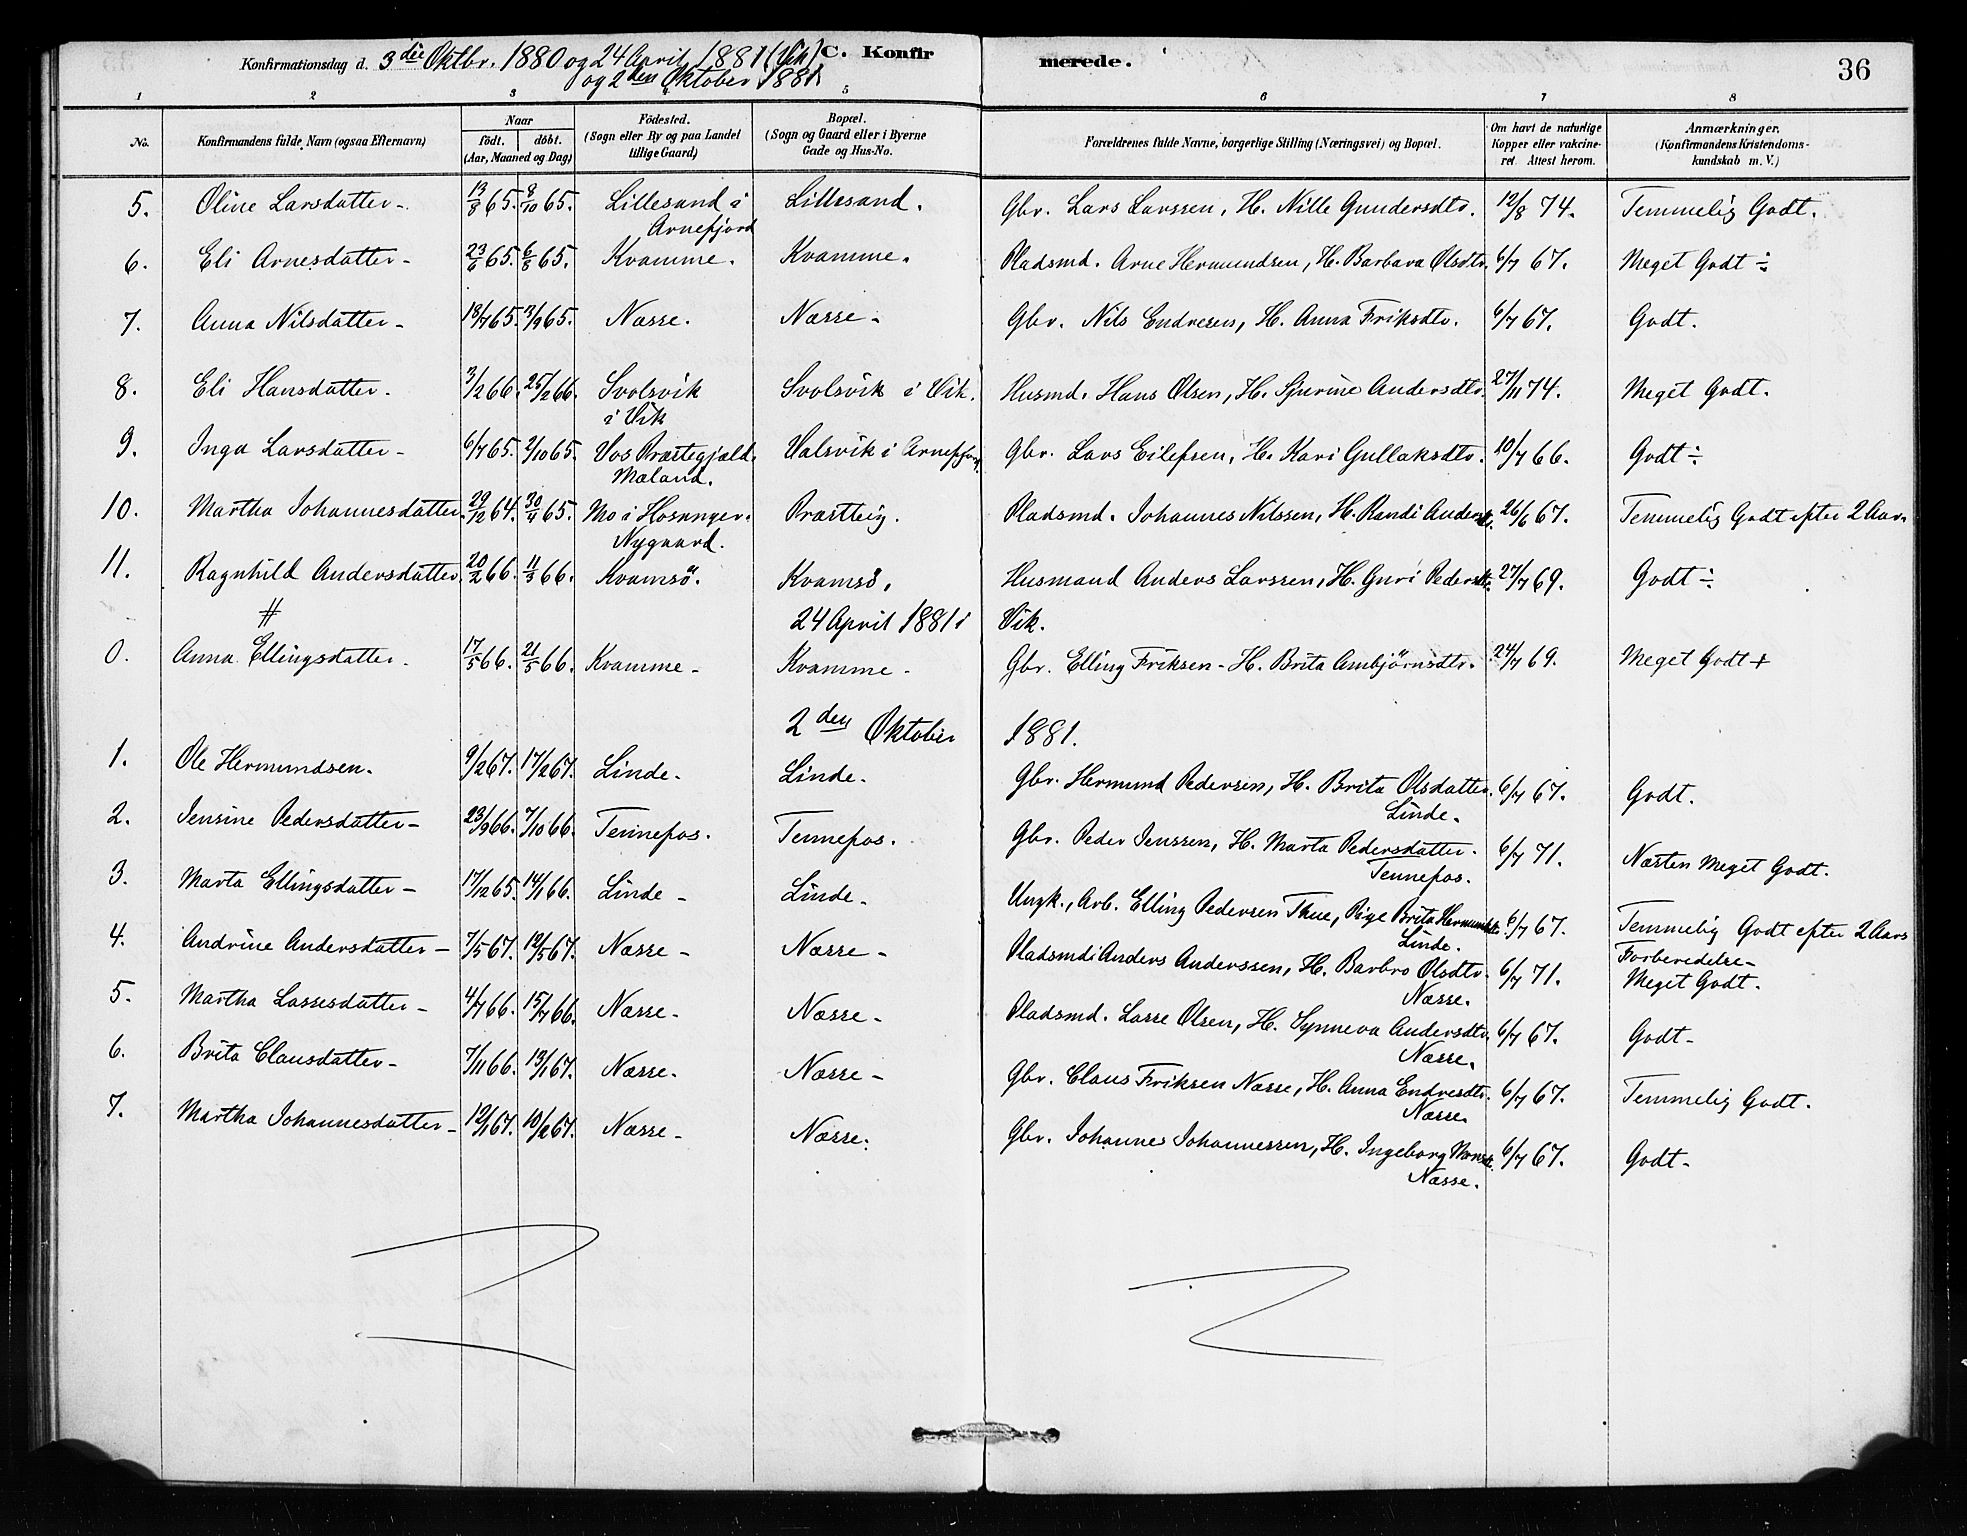 Konfirmationsdag d. 3die Oktbr. 1880 og 24 April 1881 (Vik) C. Konfirmerede. 36
og 2den Oktober 1881.
1 2 3 4 5 6 7 8
No. Konfirmandens fulde Navn (ogsaa Efternavn) Naar födt. döbt. (Aar, Maaned og Dag) Födested. (Sogn eller By og paa Landet tillige Gaard) Bopæl. (Sogn og Gaard eller i Byerne Gade og Hus-No. Forældrenes fulde Navne, borgerlige Stilling (Næringsvei) og Bopæl. Om havt de naturlige Kopper eller vakcineret. Attest herom. Anmærkninger. (Konfirmandens Kristendomskundskab m. V.)
5. Oline Larsdatter - 13/8 65. 8/10 65. Lillesand i Arnefjord Lillesand. Gbr. Lars Larssen, H. Nille Gundersdtr. 12/8 74. Temmelig Godt.
6. Eli Arnesdatter - 23/6 65. 6/8 65. Kvamme. Kvamme. Pladsmd. Arne Hermundsen, H. Barbara Olsdtr. 6/7 67. Meget Godt ÷
7. Anna Nilsdatter - 18/7 65. 3/9 65. Næsse. Næsse - Gbr. Nils Endresen, H. Anna Friksdtr. 6/7 67. Godt.
8. Eli Hansdatter. 3/2 66. 25/2 66. Svolsvik i Vik Svolsvik i Vik. Husmd. Hans Olsen, H. Sjurine Andersdtr. 27/11 74. Meget Godt.
9. Inga Larsdatter - 6/7 65. 2/10 65. Vos Præstegjæld. Mæland. Valsvik i Arnefjord. Gbr. Lars Eilefsen, H. Kari Gullaksdtr. 10/7 66. Godt ÷
10. Martha Johannesdatter 29/12 64. 30/4 65. Mo i Hosanger. Nygaard. Præstteig. Pladsmd. Johannes Nilssen, H. Randi Andersdtr. 26/6 67. Temmelig Godt efter 2 Aar.
11. Ragnhild Andersdatter. 20/2 66. 11/3 66. Kvamsö. Kvamsö. Husmand Anders Larssen, H. Guri Pedersdtr. 27/7 69. Godt ÷
# 24 April 1881 i Vik.
0. Anna Ellingsdatter. 17/5 66. 21/5 66. Kvamme - Kvamme - Gbr. Elling Friksen - H. Brita Ambjörnsdtr. 24/7 69. Meget Godt +
2den Oktober 1881.
1. Ole Hermundsen. 9/2 67. 17/2 67. Linde. Linde. Gbr. Hermund Pedersen, H. Brita Olsdatter. Linde. 6/7 67. Godt.
2. Jensine Pedersdatter - 23/9 66. 7/10 66. Tennefos. Tennefos. Gbr. Peder Jenssen, H. Marta Pedersdatter. Tennefos. 6/7 71. Næsten Meget Godt.
3. Marta Ellingsdatter - 17/12 65. 14/1 66. Linde - Linde - Ungk., Arb. Elling Pedersen Thue, Pige Brita Hermundsdtr. Linde. 6/7 67. Temmelig Godt efter 2 Aars Forberedelse -
4. Andrine Andersdatter - 7/5 67. 12/5 67. Næsse - Næsse - Pladsmd. Anders Anderssen, H. Barbro Olsdtr. Næsse. 6/7 71. Meget Godt.
5. Martha Lassesdatter - 4/7 66. 15/7 66. Næsse - Næsse - Pladsmd. Lasse Olsen, H. Synneva Andersdtr. Næsse. 6/7 67. Godt -
6. Brita Clausdatter - 7/11 66. 13/1 67. Næsse. Næsse - Gbr. Claus Friksen Næsse, H. Anna Endresdtr. Næsse. 6/7 67. Temmelig Godt.
7. Martha Johannesdatter - 12/1 67. 10/2 67. Næsse - Næsse. Gbr. Johannes Johannessen, H. Ingeborg Monsdtr. Næsse. 6/7 67. Godt -